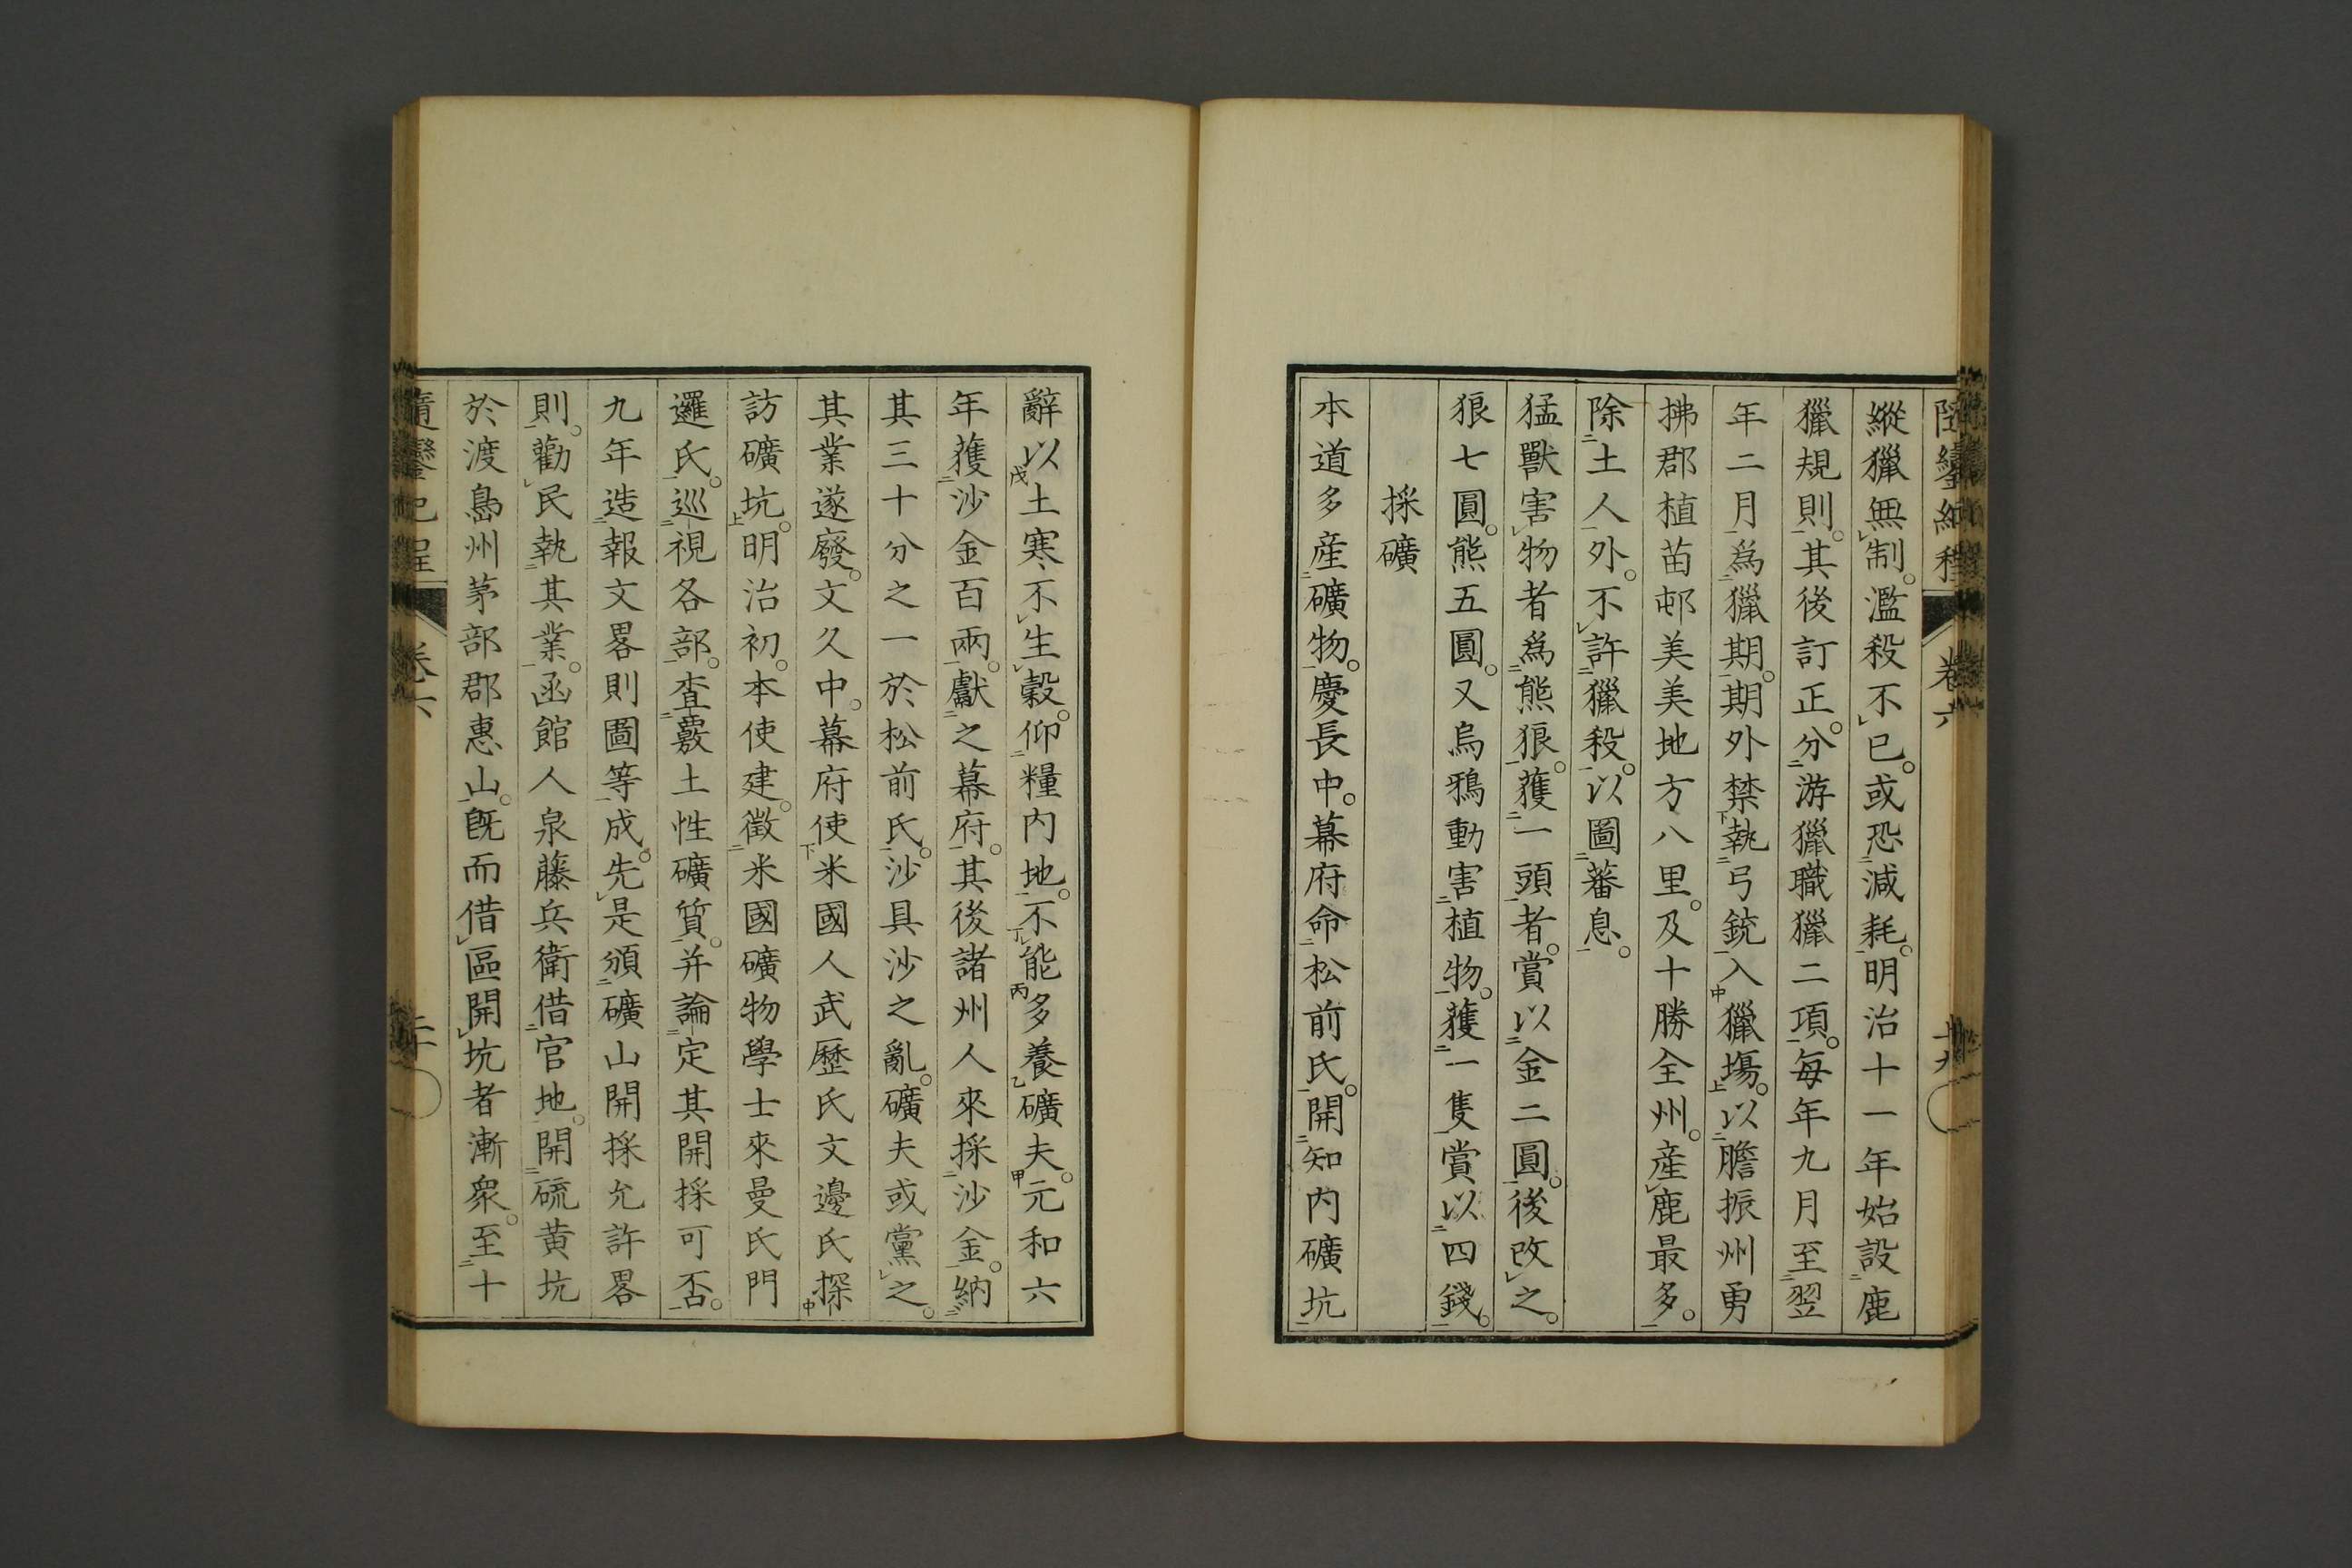 隨鑾紀程 卷六 十九
縱獵無制。濫殺不已。或恐減耗。明治十一年始設鹿
獵規則。其後訂正。分游獵職獵二項。每年九月至翌
年二月爲獵期。期外禁執弓銃入獵場。以膽振州勇
拂郡植苗邨美美地方八里。及十勝全州。産鹿最多。
除土人外。不許獵殺。以圖蕃息。
猛獸害物者爲熊狼。獲一頭者。賞以金二圓。後改之。
狼七圓。熊五圓。又烏鴉動害植物。獲一隻賞以四錢。
採礦
本道多産礦物。慶長中。幕府命松前氏。開知内礦坑
辭以土寒不生穀。仰糧内地。不能多養礦夫。元和六
年獲沙金百兩。獻之幕府。其後諸州人來採沙金。納
其三十分之一於松前氏。沙具沙之亂。礦夫或黨之。
其業遂廢。文久中。幕府使米國人武歷氏文邊氏探
訪礦坑。明治初。本使建。徵米國礦物學士來曼氏門
邏氏。巡視各部。査覈土性礦質。并論定其開採可否。
九年造報文畧則圖等成。先是頒礦山開採允許畧
則。勸民執其業。函館人泉藤兵衛借官地。開硫黄坑
於渡島州茅部郡惠山。既而借區開坑者漸衆。至十
隨鑾紀程 卷六 二十